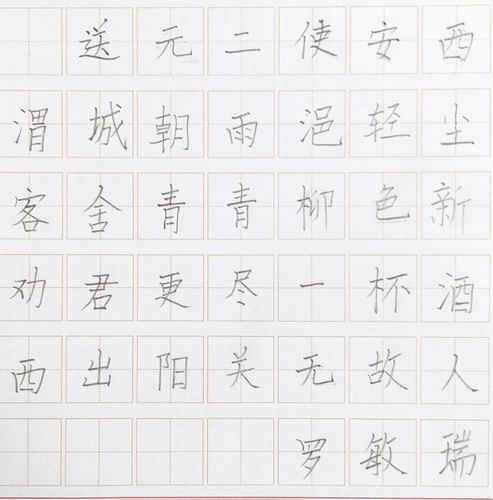 送元二使安西
渭城朝雨浥轻尘
客舍青青柳色新
劝君更尽一杯酒
西出阳关无故人
罗敏瑞